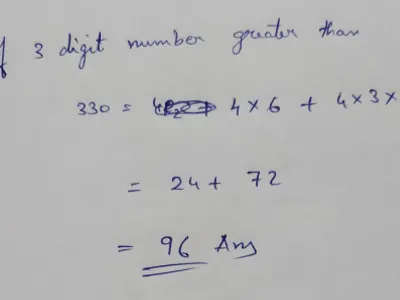 f 3 digit number greater than
330 = 4×6 + 4×3×
= 24 + 72
= 96 Ans